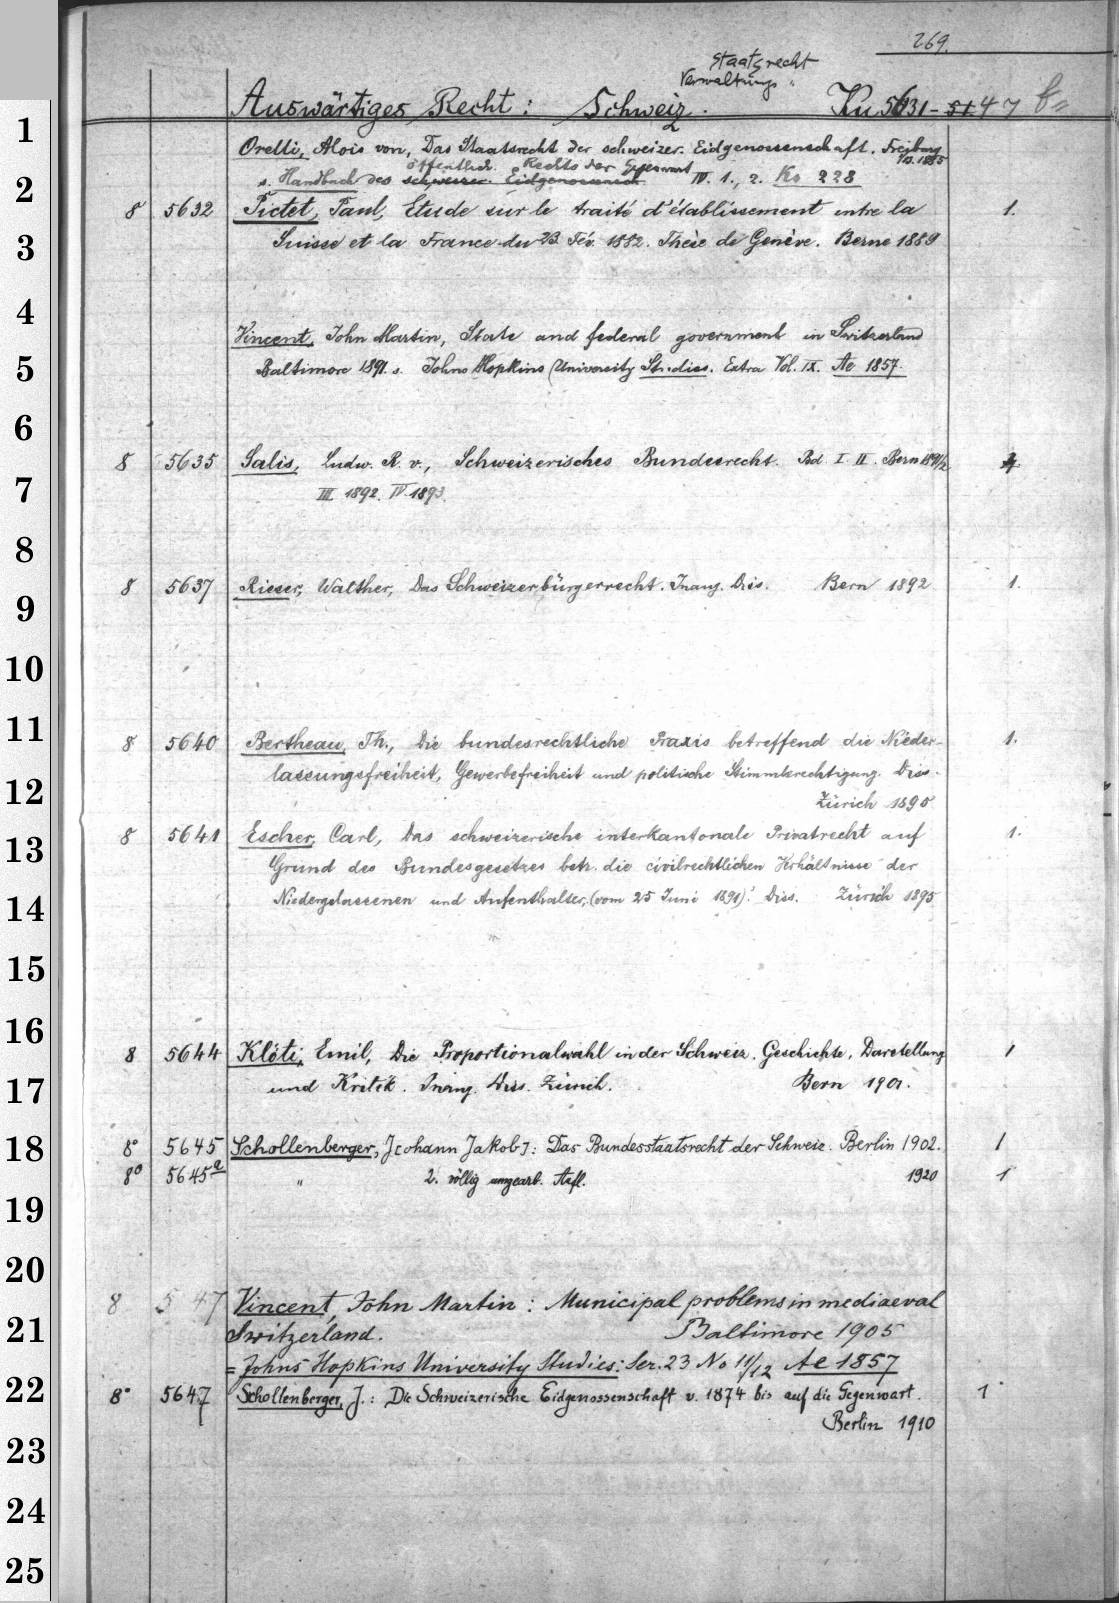 269.
Staatsrecht
Verwaltungs "
Auswärtiges Recht: Schweiz. Ku 5631-51.47 b=
1
Orelli, Alois von, Das Staatsrecht der schweizer. Eidgenossenschaft. Freiburg
i/B. 1885
öffentlich. Rechts der Gegenwart
s. Handbuch des schweizer. Eidgenossensch IV. 1., 2. Ko 228
2
8 5632 Pictet, Paul, Etude sur le traité d'établissement entre la 1.
3 Suisse et la France du 23. Fév. 1882. Thèse de Genève. Berne 1889
4
Vincent, John Martin, State and federal government in Switzerland
5 Baltimore 1891. s. Johns Hopkins University Studies. Extra Vol. IX. Ae 1857.
6
8 5635 Salis, Ludw. R. v., Schweizerisches Bundesrecht. Bd I. II. Bern 1891/2. 4
7 III 1892. IV. 1893.
8
8 5637 Rieser, Walther, Das Schweizerbürgerrecht. Inaug. Diss. Bern 1892 1.
9
10
11 8 5640 Bertheau, Th., Die bundesrechtliche Praxis betreffend die Nieder- 1.
lassungsfreiheit, Gewerbefreiheit und politische Stimmberechtigung. Diss.
12 Zürich 1895
13 8 5641 Escher, Carl, Das schweizerische interkantonale Privatrecht auf 1.
Grund des Bundesgesetzes betr. die civilrechtlichen Verhältnisse der
14 Niedergelassenen und Aufenthalter, (vom 25 Juni 1891). Diss. Zürich 1895
15
16
8 5644 Klöti, Emil, Die Proportionalwahl in der Schweiz. Geschichte, Darstellung 1
17 und Kritik. Inaug. Diss. Zürich. Bern 1901.
18 8° 5645 Schollenberger, J[ohann Jakob]: Das Bundesstaatsrecht der Schweiz. Berlin 1902. 1
8° 5645a " 2. völlig umgearb. Aufl. 1920 1
19
20
8 5 47 Vincent, John Martin: Municipal problems in mediaeval
21 Switzerland. Baltimore 1905
= Johns Hopkins University Studies: Ser. 23 No 11/12 Ae 1857
22 8° 5647 Schollenberger, J.: Die Schweizerische Eidgenossenschaft v. 1874 bis auf die Gegenwart. 1
Berlin 1910
23
24
25